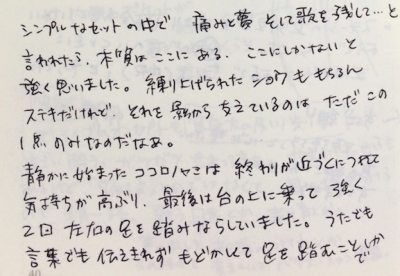 シンプルなセットの中で 痛みと夢 そして歌を残して…と
言われたら、本質はここにある、ここにしかないと
強く思いました。練り上げられたショウももちろん
ステキだけれど、それを影から支えているのは ただ この
1点のみなのだなぁ。
静かに始まったココロノヤミは 終わりが近づくにつれて
気持ちが高ぶり、最後は台の上に乗って 強く
2回 左右の足を踏みならしていました。うたでも
言葉でも伝えきれず もどかしくて 足を踏むことしか
で
40